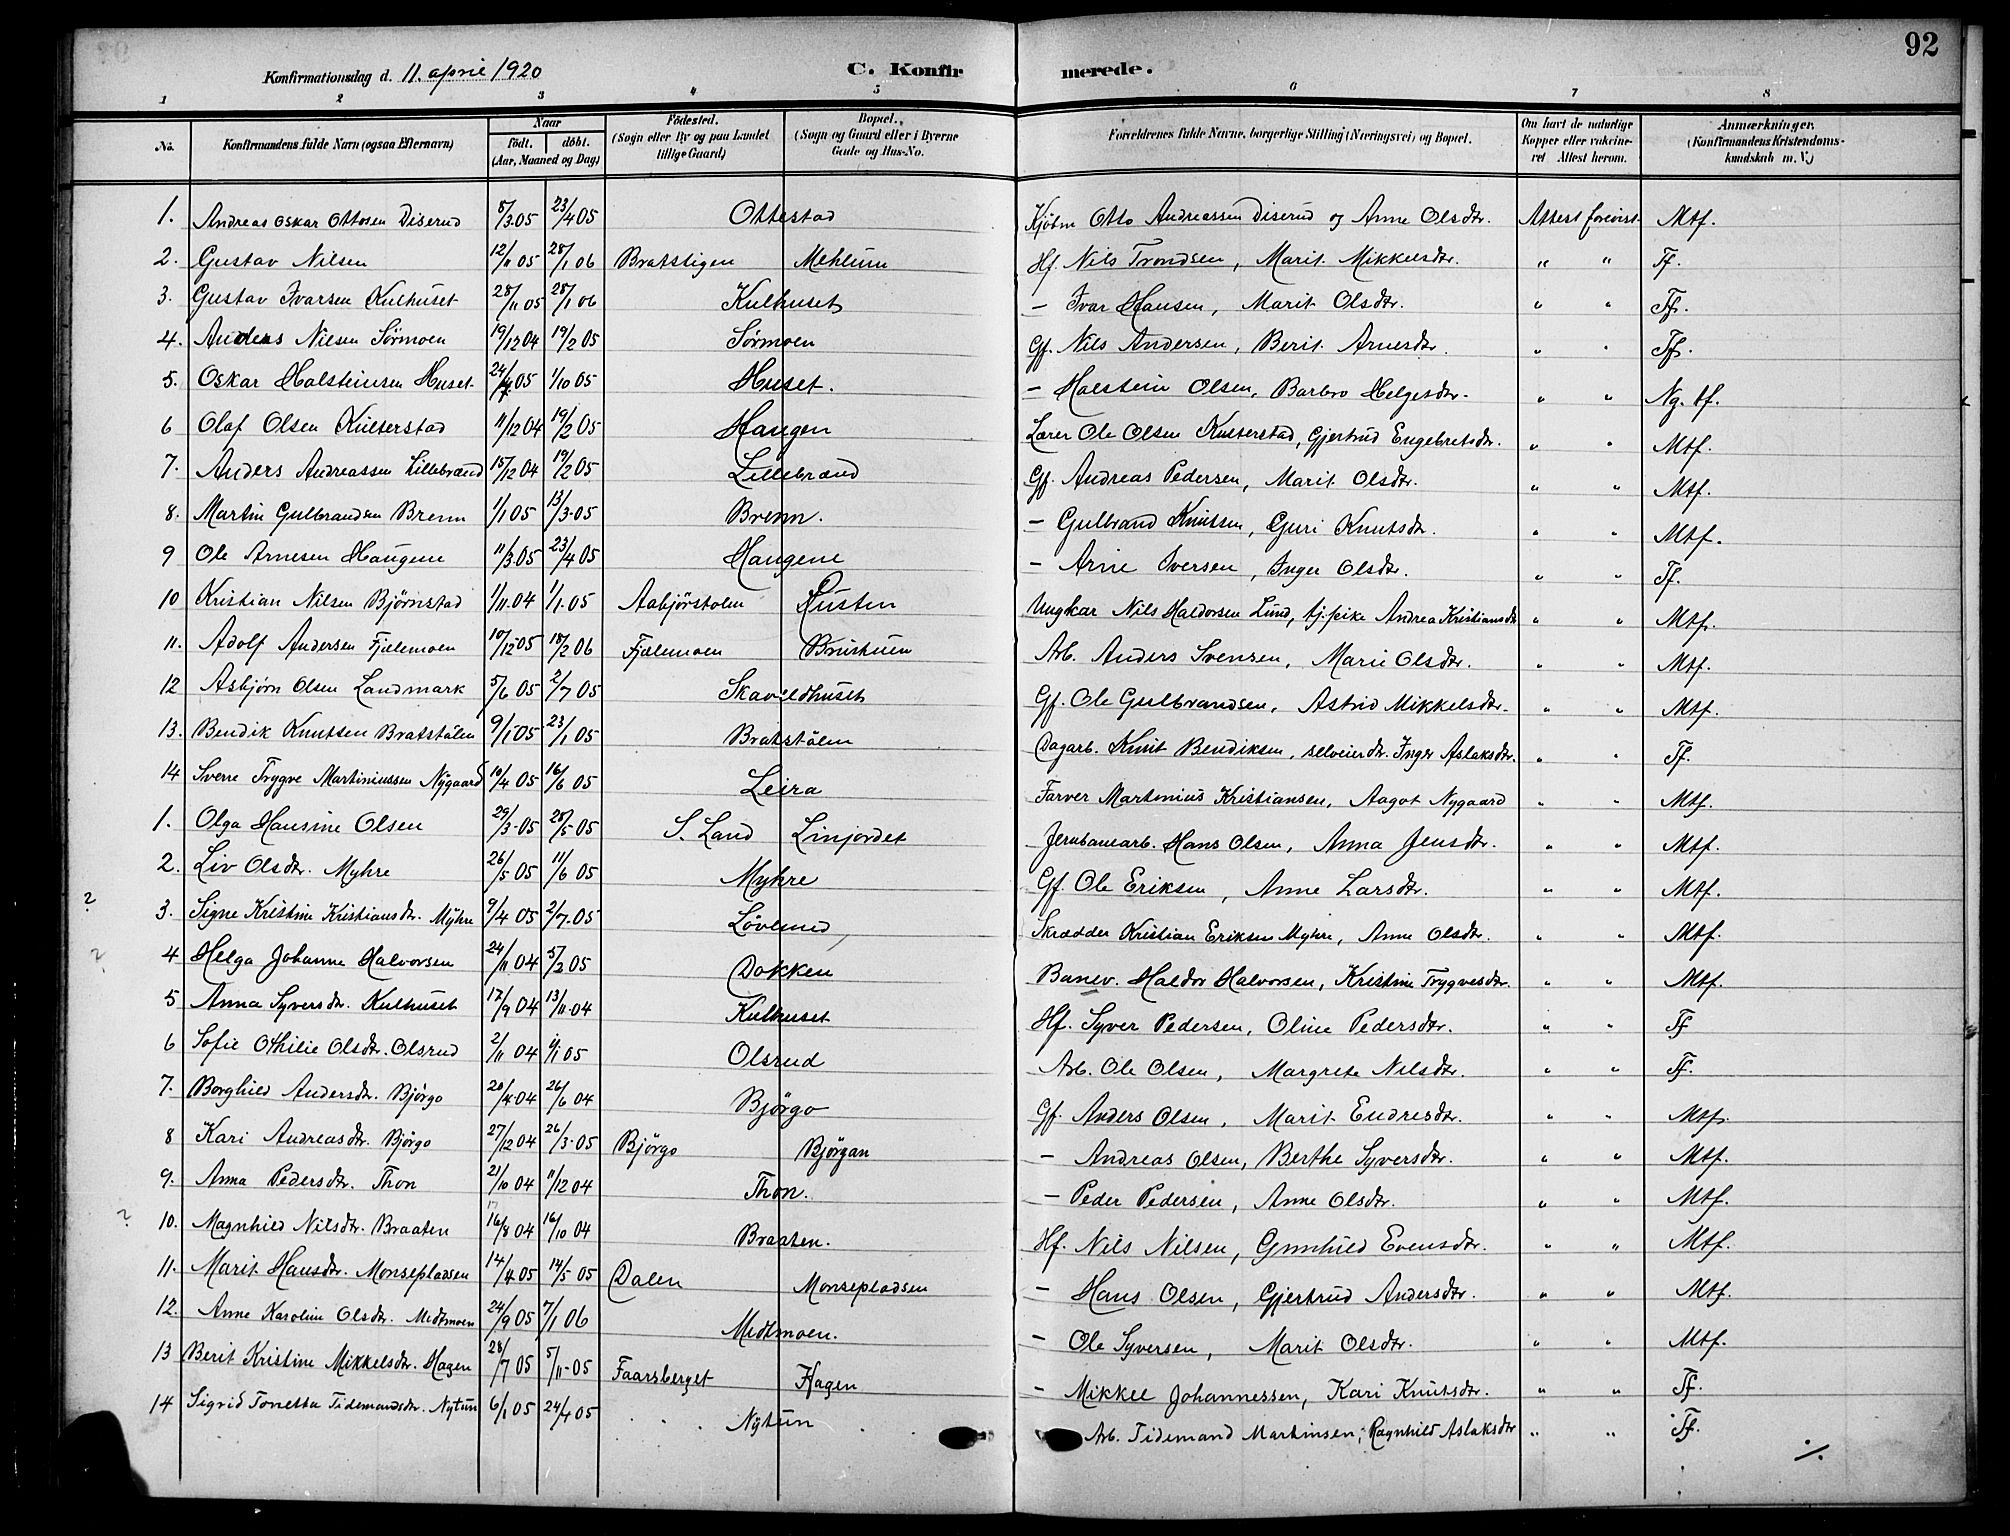 92
Konfirmationsdag d. 11. april 1920 C. Konfirmerede.
1 2 3 4 5 6 7 8
No. Konfirmandens fulde Navn (ogsaa Efternavn) Naar födt. döbt. (Aar, Maaned og Dag) Födested. (Sogn eller By og paa Landet tillige Gaard) Bopæl. (Sogn og Gaard eller i Byerne Gade og Hus-No. Forældrenes fulde Navne, borgerlige Stilling (Næringsvei) og Bopæl. Om havt de naturlige Kopper eller vakcineret Attest herom. Anmærkninger. (Konfirmandens Kristendomskundskab m. V.)
1. Andreas Oskar Ottosen Diserud 8/3.05 23/4 05 Ottestad Kjøbm Otto Andreassen Diserud og Anne Olsdtr. Attest forevist Mtf.
2. Gustav Nilsen 12/11 05 28/1 06 Bratstigen Mehlum Hf. Nils Trondsen, Marit Mikkelsdtr. " " Tf.
3. Gustav Ivarsen Kulhuset 28/11 05 28/1 06 Kulhuset — Ivar Hansen, Marit Olsdtr. " " Tf.
4. Anders Nilsen Sørmoen 19/12 04 19/2 05 Sørmoen Gf. Nils Andersen, Berit Arnesdtr. " " Tf.
5. Oskar Halsteinsen Huset 24/ 05 1/10 05 Huset. — Halstein Olsen, Barbro Helgesdtr. " " Ng. tf.
6 Olaf Olsen Kulterstad 11/12 04 19/2 05 Haugen Lærer Ole Olsen Kulterstad, Gjertrud Engebretsdtr. " " Mtf.
7. Anders Andreassen Lillebrænd 15/12 04 19/2 05 Lillebrænd Gf. Andreas Pedersen, Marit Olsdtr. " " Mtf.
8. Martin Gulbrandsen Brenn 1/1 05 13/3.05 Brenn. — Gulbrand Knutsen, Guri Knutsdtr. " " Mtf.
9 Ole Arnesen Haugene 11/3.05 23/4 05 Haugene — Arne Iversen, Inger Olsdtr. " " Tf.
10 Kristian Nilsen Björnstad 1/11.04 1/1.05 Aabjörstolen Husten Ungkar Nils Haldorsen Lund, tj.pike Andrea Kristiansdtr " " Mtf.
11. Adolf Andersen Fjelemoen 10/12 05 18/2 06 Fjælemoen Bruskuen Arb. Anders Svensen, Marie Olsdtr. " " Mtf.
12 Asbjörn Olsen Landmark 5/6 05 2/7 05 Skaveldhuset Gf. Ole Gulbrandsen, Astrid Mikkelsdtr. " " Mtf.
13. Bendik Knutsen Bratstölen 9/1 05 23/1 05 Bratstölen Dagarb. Knut Bendiksen, selveierdtr. Inger Aslaksdtr. " " Tf.
14 Sverre Trygve Martiniussen Nygaard 10/4 05 16/6 05 Leira Farver Martinius Kristiansen, Aagot Nygaard " " Mtf.
1. Olga Hansine Olsen 29/3.05 28/5.05 S. Land Linjordet Jernbanearb. Hans Olsen, Anna Jensdtr. " " Mtf.
2. Liv Olsdtr. Myhre 26/5 05 11/6 05 Myhre Gf. Ole Eriksen, Anne Larsdtr. " " Mtf.
? 3. Signe Kristine Kristiansdtr. Myhre 9/4 05 2/7.05 Lövlund Skrædder Kristian Eriksen Myhre, Anne Olsdtr. " " Mtf.
? 4 Helga Johanne Halvorsen 24/11 04 5/2 05 Dokken Banev. Haldor Halvorsen, Kristine Trygvesdtr. " " Mtf.
5 Anna Syversdtr. Kulhuset 17/9 04 13/11.04 Kulhuset Hf. Syver Pedersen, Oline Pedersdtr. " " Tf
6 Sofie Othilie Olsdtr. Olsrud 2/11 04 /1 05 Olsrud Arb. Ole Olsen, Margrete Nilsdtr. " " Tf.
7. Borghild Andersdtr. Björgo 20/4 04 26/6 04 Björgo Gf. Anders Olsen, Marit Endresdtr. " " Mtf.
8 Kari Andreasdtr. Björgo 27/12 04 26/3.05 Björgo Björgan — Andreas Olsen, Berthe Syversdtr. " " Mtf.
9. Anna Pedersdtr. Thon 21/10 04 11/12 04 Thon. — Peder Pedersen, Anne Olsdtr. " " Mtf.
? 10. Magnhild Nilsdtr. Braaten 16/8 04 16/10 04 Braaten. Hf. Nils Nilsen, Gunhild Evensdtr. " " Mtf.
11. Marit Hansdtr. Monsepladsen 14/4 05 14/5 05 Dalen Monsepladsen — Hans Olsen, Gjertrud Andersdtr. " " Mtf.
12. Anne Karoline Olsdtr. Medtmoen 24/9 05 7/1 06 Medtmoen. — Ole Syversen, Marit Olsdtr. " " Mtf.
13 Berit Kristine Mikkelsdtr. Hagen 28/7 05 5/11.05 Faarsberget Hagen — Mikkel Johannessen, Kari Knutsdtr. " " Tf.
14 Sigrid Tonetta Tidemandsdtr. Nytun 6/1 05 24/4 05 Nytun Arb. Tidemand Martinsen, Ragnhild Aslaksdtr " " Tf.